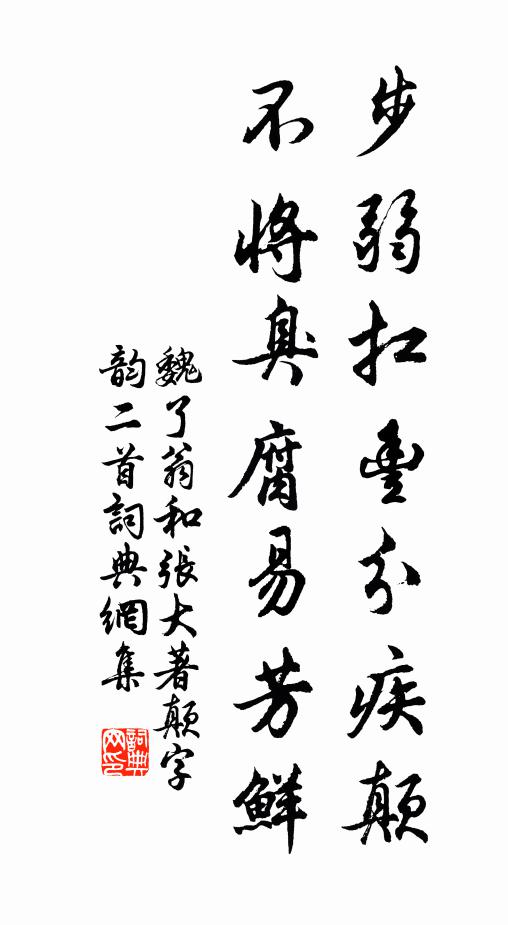 步弱扛豐分疾顛
不將臭腐易芳鮮
魏了翁和張大著顛字
韵二首詞典網集
詞典
网印